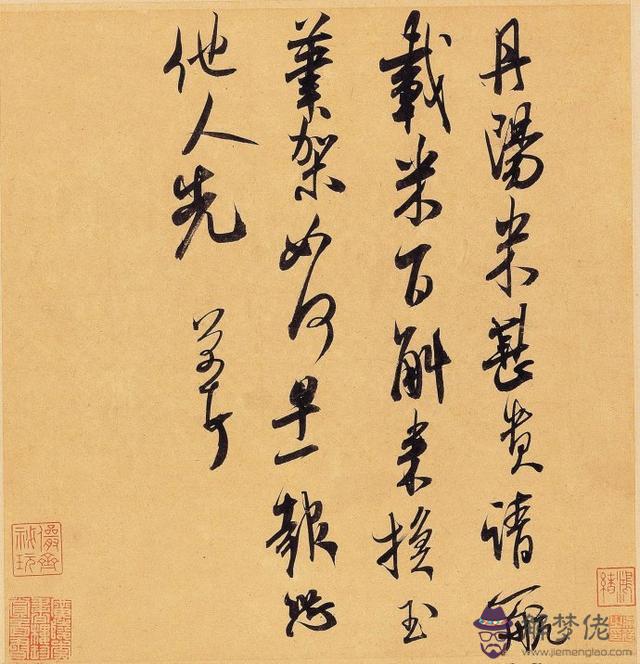 丹陽米甚貴請一航
載米百斛來換玉
筆架如何早一報恐
他人先
儼齋秘玩
解梦佬
www.jiemenglao.com